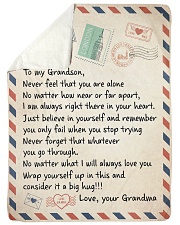 To my Grandson,
Never feel that you are alone
No matter how near or far apart,
I am always right there in your heart.
Just believe in yourself and remember
you only fail when you stop trying
Never forget that whatever
you go through.
No matter what I will always love you
Wrap yourself up in this and
consider it a big hug!!!
Love, your Grandma